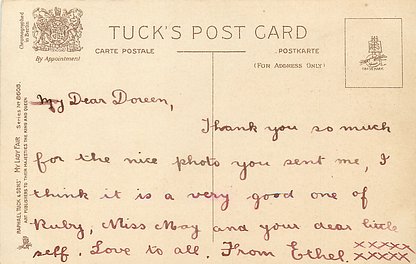 TUCK'S POST CARD
CARTE POSTALE
POSTKARTE
(FOR ADDRESS ONLY)
By Appointment
Chromographed in Berlin
RAPHAEL TUCK & SONS' "MY LADY FAIR" SERIES No 8608.
ART PUBLISHERS TO THEIR MAJESTIES THE KING AND QUEEN
My Dear Doreen,
Thank you so much
for the nice photo you sent me, I
think it is a very good one of
Ruby, Miss May and your dear little
self. Love to all. From Ethel. xxxxx
xxxxx